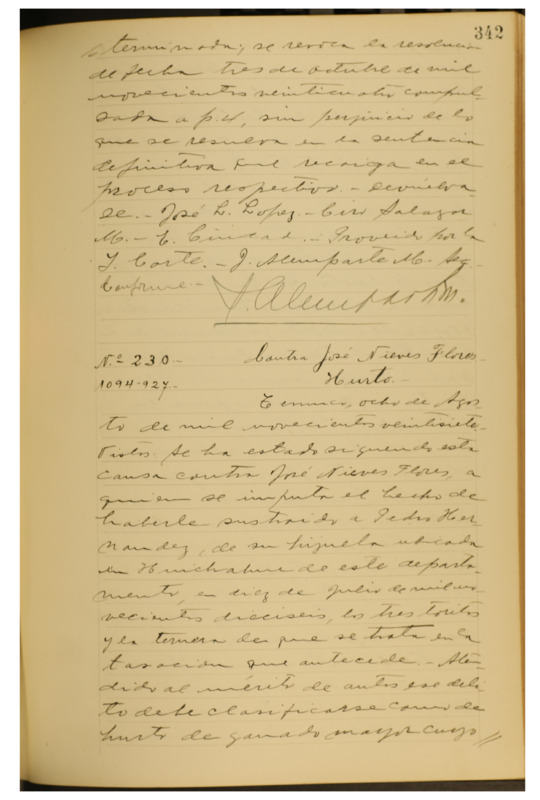 342
terminada; se revoca la resolución
de fecha tres de octubre de mil
novecientos veinticuatro compul-
sada a p. 4, sin perjuicio de lo
que se resuelva en la sentencia
definitiva que recaiga en el
proceso respectivo. - Devuélva-
se. - José L. Lopez. - Ciro Salazar
M. - E. Ciudad. - Proveido por la
I. Corte. - J. Alemparte M. Sec.
Conforme. -
J. Alemparte M.
N.º 230. -
Contra José Nieves Flores. -
1094-927. -
Hurto. -
Temuco, ocho de Agos-
to de mil novecientos veintisiete.
Vistos: Se ha estado siguiendo esta
causa contra José Nieves Flores, a
quien se imputa el hecho de
haberle sustraido a Pedro Her-
nandez, de su hijuela ubicada
en Huichahue de este departa-
mento, en diez de Julio de mil no-
vecientos dieciseis, los tres toritos
y la ternera de que se trata en la
tasacion que antecede. - Aten-
dido al mérito de autos ese deli-
to debe clasificarse como de
hurto de ganado mayor cuyo